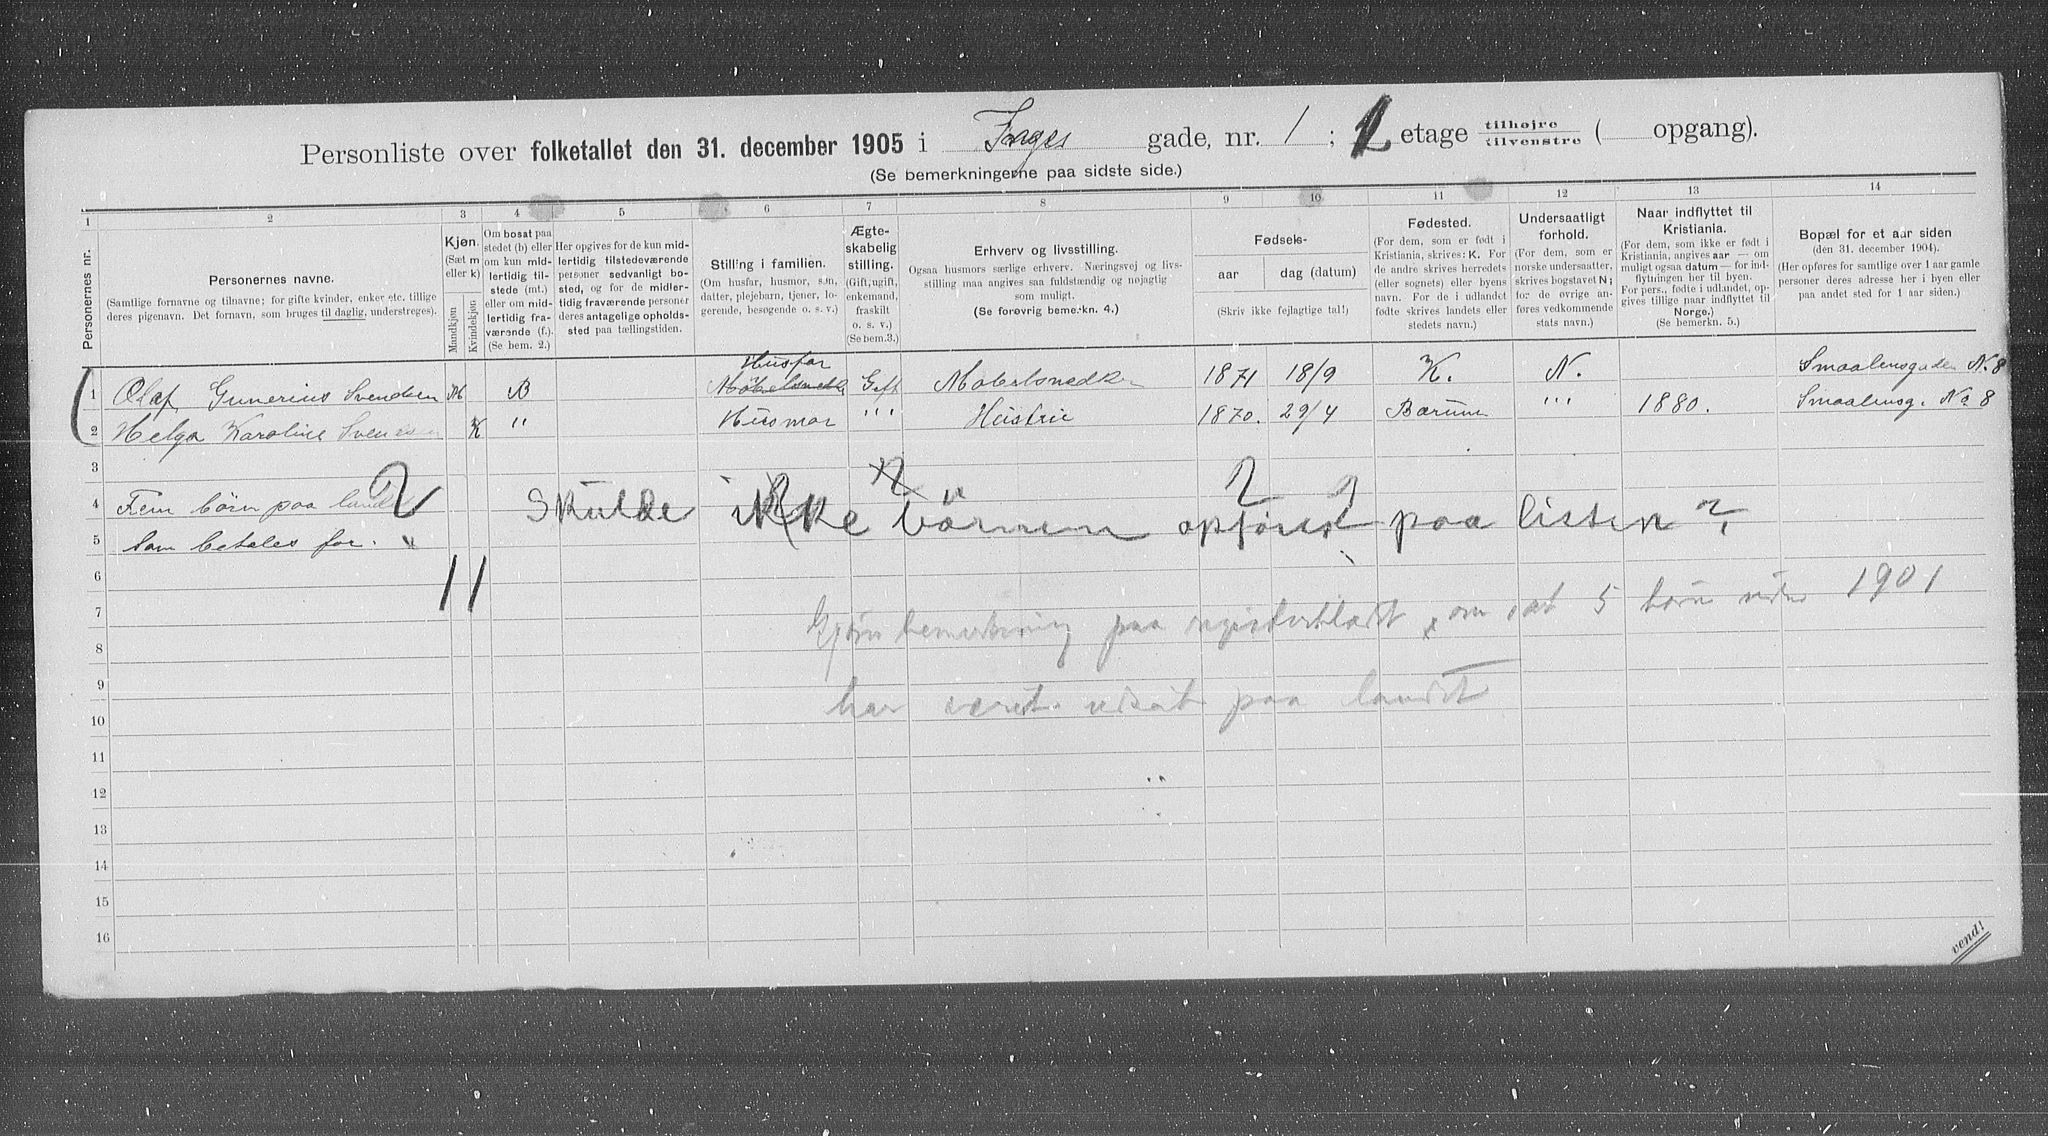 Personliste over folketallet den 31. december 1905 i Inges gade, nr. 1 ; 2 etage tilhøjre tilvenstre ( opgang).
(Se bemerkningerne paa sidste side.)
1 2 3 4 5 6 7 8 9 10 11 12 13 14
Personernes nr.
Personernes navne.
(Samtlige fornavne og tilnavne; for gifte kvinder, enker etc. tillige
deres pigenavn. Det fornavn, som bruges til daglig, understreges).
Kjøn.
(Sæt m
eller k)
Mandkjøn
Kvindekjøn
Om bosat paa
stedet (b) eller
om kun mid-
lertidig til-
stede (mt.)
eller om mid-
lertidig fra-
værende (f.).
(Se bem. 2.)
Her opgives for de kun mid-
lertidig tilstedeværende
personer sedvanligt bo-
sted, og for de midler-
tidig fraværende personer
deres antagelige opholds-
sted paa tællingstiden.
Stilling i familien.
(Om husfar, husmor, søn,
datter, plejebarn, tjener, lo-
gerende, besøgende o. s. v.)
Ægte-
skabelig
stilling.
(Gift, ugift,
enkemand,
fraskilt
o. s. v.)
(Se bem. 3.)
Erhverv og livsstilling.
Ogsaa husmors særlige erhverv. Næringsvej og livs-
stilling maa angives saa fuldstændig og nøjagtig
som muligt.
(Se forøvrig bemerkn. 4.)
Fødsels-
aar dag (datum)
(Skriv ikke fejlagtige tal!)
Fødested.
(For dem, som er født i
Kristiania, skrives: K. For
de andre skrives herredets
(eller sognets) eller byens
navn. For de i udlandet
fødte skrives landets eller
stedets navn.)
Undersaatligt
forhold.
(For dem, som er
norske undersaatter,
skrives bogstavet N;
for de øvrige an-
føres vedkommende
stats navn.)
Naar indflyttet til
Kristiania.
(For dem, som ikke er født i
Kristiania, angives aar — om
muligt ogsaa datum — for ind-
flytningen her til byen.
For pers., fødte i udlandet, op-
gives tillige naar indflyttet til
Norge.)
(Se bemerkn. 5.)
Bopæl for et aar siden
(den 31. december 1904).
(Her opføres for samtlige over 1 aar gamle
personer deres adresse her i byen eller
paa andet sted for 1 aar siden.)
Husfar
1 Olaf Gunerius Svendsen M B Möbelsnedk Gift Mobelsnedk 1871 18/9 K. N. Smaalensgaden N. 8
2 Helga Karoline Svendsen K " Husmor " " " Hustrie 1870. 29/4 Bærum " " " 1880. Smaalensg. No 8
3
4 Fem börn paa landet
Skulde ikke börnen opføres paa listen?
5 som betales for.
6
7 Gjør bemerkning paa registerbladet, om at 5 børn siden 1901
8
9
har været udsat paa landet
10
11
12
13
14
15
16
vend!